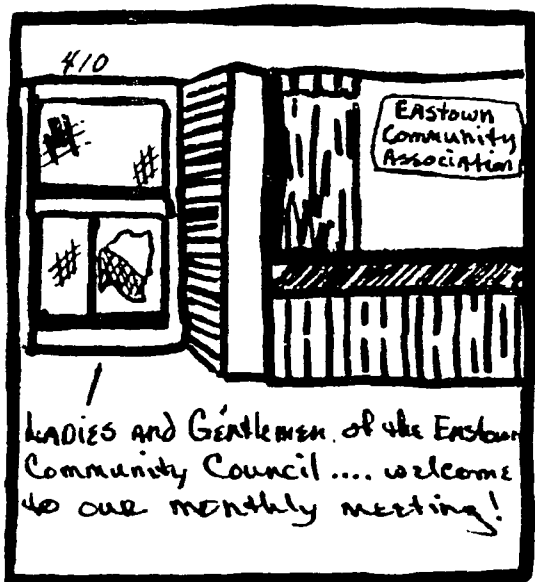 410
Eastown
Community
Association
Ladies and Gentlemen of the Eastown
Community Council .... welcome
to our monthly meeting!